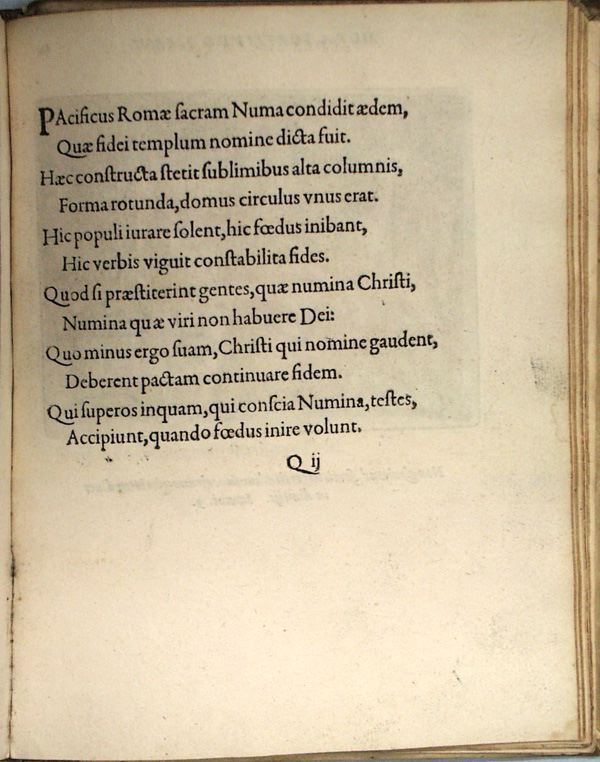 PAcificus Romæ ſacram Numa condidit ædem,
Quæ fidei templum nomine dicta fuit.
Hæc conſtructa ſtetit ſublimibus alta columnis,
Forma rotunda, domus circulus vnus erat.
Hic populi iurare ſolent, hic fœdus inibant,
Hic verbis viguit conſtabilita fides.
Quod ſi præſtiterint gentes, quæ numina Chriſti,
Numina quæ viri non habuere Dei:
Quo minus ergo ſuam, Chriſti qui nomine gaudent,
Deberent pactam continuare fidem.
Qui ſuperos inquam, qui conſcia Numina, teſtes,
Accipiunt, quando fœdus inire volunt.
Q ij